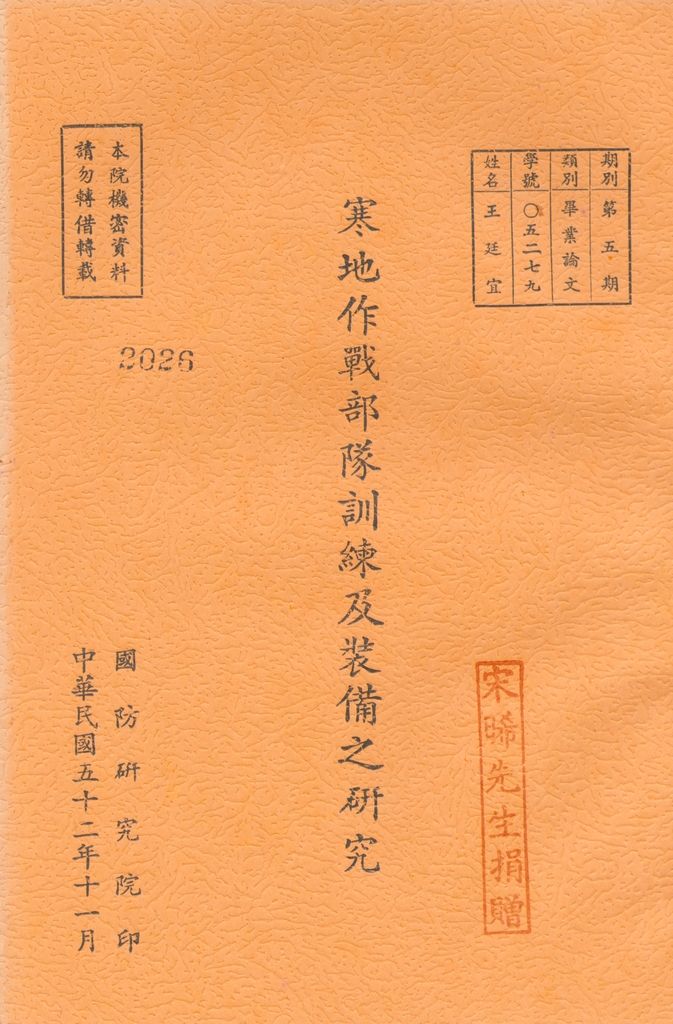 期別 第五期
類別 畢業論文
學號 〇五二七九
姓名 王廷宜
寒地作戰部隊訓練及裝備之研究
本院機密資料
請勿轉借轉載
2026
宋晞先生捐贈
國防研究院印
中華民國五十二年十一月